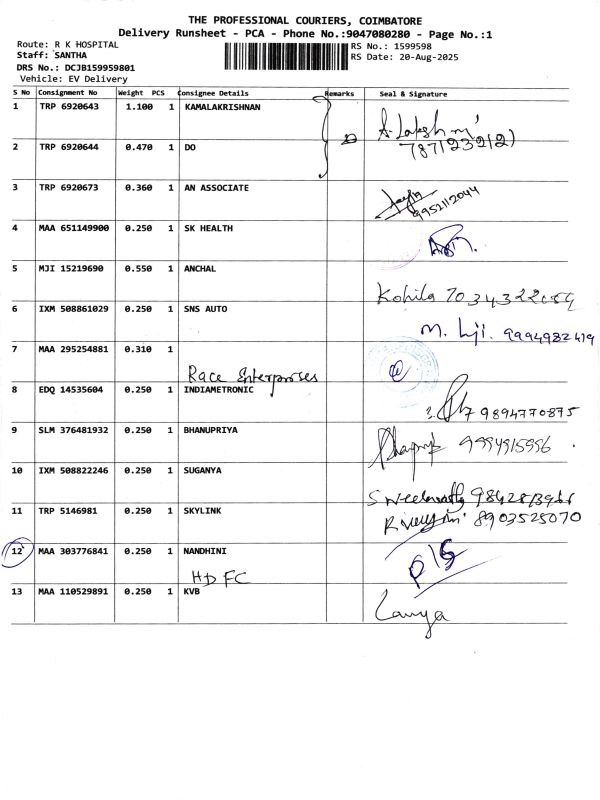 THE PROFESSIONAL COURIERS, COIMBATORE
Delivery Runsheet - PCA - Phone No.:9047080280 - Page No.:1
Route: R K HOSPITAL
Staff: SANTHA
DRS No.: DCJB159959801
Vehicle: EV Delivery
RS No.: 1599598
RS Date: 20-Aug-2025
S No Consignment No Weight PCS Consignee Details Remarks Seal & Signature
1 TRP 6920643 1.100 1 KAMALAKRISHNAN
2 TRP 6920644 0.470 1 DO
3 TRP 6920673 0.360 1 AN ASSOCIATE 9952112044
4 MAA 651149900 0.250 1 SK HEALTH
5 MJI 15219690 0.550 1 ANCHAL
Kohila
6 IXM 508861029 0.250 1 SNS AUTO
9994982419
7 MAA 295254881 0.310 1
Race Enterprises
8 EDQ 14535604 0.250 1 INDIAMETRONIC
9894770875
9 SLM 376481932 0.250 1 BHANUPRIYA
9994915996
10 IXM 508822246 0.250 1 SUGANYA
11 TRP 5146981 0.250 1 SKYLINK
8903525070
12 MAA 303776841 0.250 1 NANDHINI
HDFC
13 MAA 110529891 0.250 1 KVB